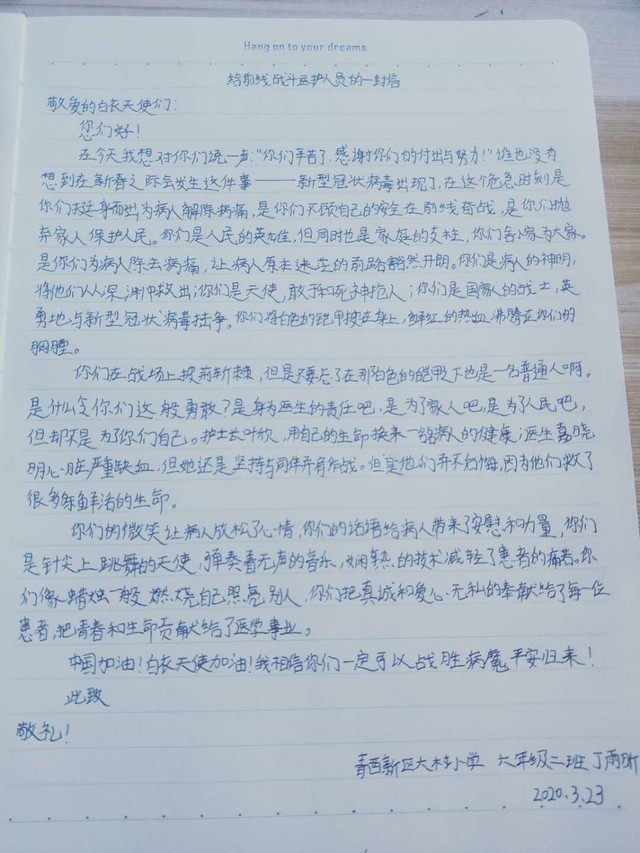 Hang on to your dreams
给前线战斗医护人员的一封信
敬爱的白衣天使们：
您们好！
在今天我想对你们说一声："你们辛苦了，感谢你们的付出与努力！"谁也没有
想到在新春之际会发生这件事——新型冠状病毒出现了，在这个危急时刻是
你们挺身而出为病人解除病痛，是你们不顾自己的安全在前线奋战，是你们抛
弃家人保护人民。你们是人民的英雄，但同时也是家庭的支柱，你们舍小家为大家。
是你们为病人除去病痛，让病人原本迷茫的前路豁然开朗。你们是病人的神明，
将他们从深渊中救出；你们是天使，敢于和死神抢人；你们是国家的战士，英
勇地与新型冠状病毒抗争。你们将白色的铠甲披在身上，鲜红的热血沸腾在你们的
胸膛。
你们在战场上披荆斩棘，但是不要忘了在那白色的铠甲下也是一名普通人啊。
是什么令你们这般勇敢？是身为医生的责任吧，是为了家人吧，是为了人民吧，
但却不是为了你们自己。护士长叶欣，用自己的生命换来一路病人的健康；医生
明心脏严重缺血，但她还是坚持与同伴并肩作战。但是他们并不后悔，因为他们救了
很多条鲜活的生命。
你们的微笑让病人放松了心情，你们的话语给病人带来了安慰和力量，你们
是针尖上跳舞的天使，弹奏着无声的音乐，娴熟的技术减轻了患者的痛苦。你
们像蜡烛一般燃烧自己照亮别人，你们把真诚和爱心无私的奉献给了每一位
患者，把青春和生命贡献给了医学事业。
中国加油！白衣天使加油！我相信你们一定可以战胜病魔平安归来！
此致
敬礼！
青西新区大村小学 六年级二班 丁雨昕
2020.3.23